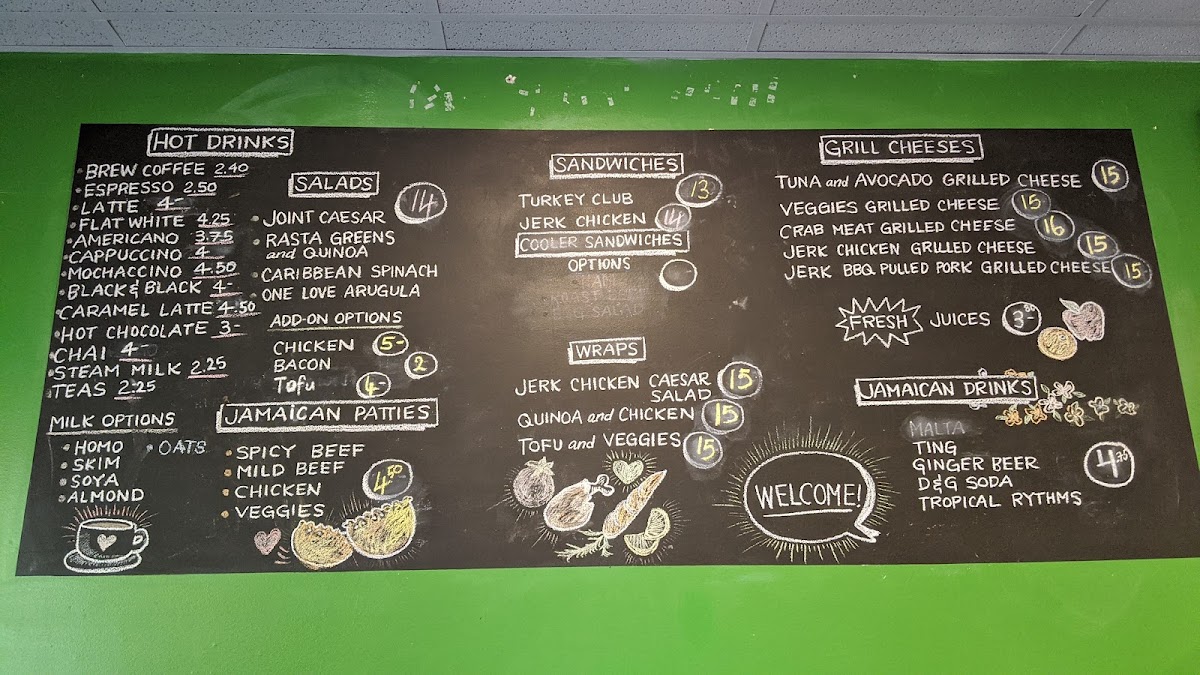 HOT DRINKS
BREW COFFEE 2.40
ESPRESSO 2.50
LATTE 4-
FLAT WHITE 4.25
AMERICANO 3.75
CAPPUCCINO 4-
MOCHACCINO 4.50
BLACK & BLACK 4-
CARAMEL LATTE 4.50
HOT CHOCOLATE 3-
CHAI 4-
STEAM MILK 2.25
TEAS 2.25
MILK OPTIONS
HOMO
OATS
SKIM
SOYA
ALMOND
SALADS
14
JOINT CAESAR
RASTA GREENS
and QUINOA
CARIBBEAN SPINACH
ONE LOVE ARUGULA
ADD-ON OPTIONS
CHICKEN 5-
BACON 2
Tofu 4-
JAMAICAN PATTIES
SPICY BEEF
MILD BEEF
CHICKEN
VEGGIES
4.50
SANDWICHES
TURKEY CLUB 13
JERK CHICKEN 14
COOLER SANDWICHES
OPTIONS
WRAPS
JERK CHICKEN CAESAR
SALAD 15
QUINOA and CHICKEN 15
TOFU and VEGGIES 15
GRILL CHEESES
TUNA and AVOCADO GRILLED CHEESE 15
VEGGIES GRILLED CHEESE 15
CRAB MEAT GRILLED CHEESE 16
JERK CHICKEN GRILLED CHEESE 15
JERK BBQ PULLED PORK GRILLED CHEESE 15
FRESH JUICES 3-
JAMAICAN DRINKS
MALTA
TING
GINGER BEER
D&G SODA
TROPICAL RYTHMS
4.75
WELCOME!